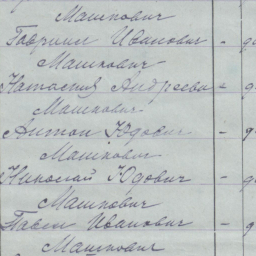 Машкович
Гавриил Иванович - д
Машкович
Анастасия Андреевн - д
Машкович
Антон Юдович - д
Машкович
Николай Юдович - д
Машкович
Павел Иванович - д
Машкович